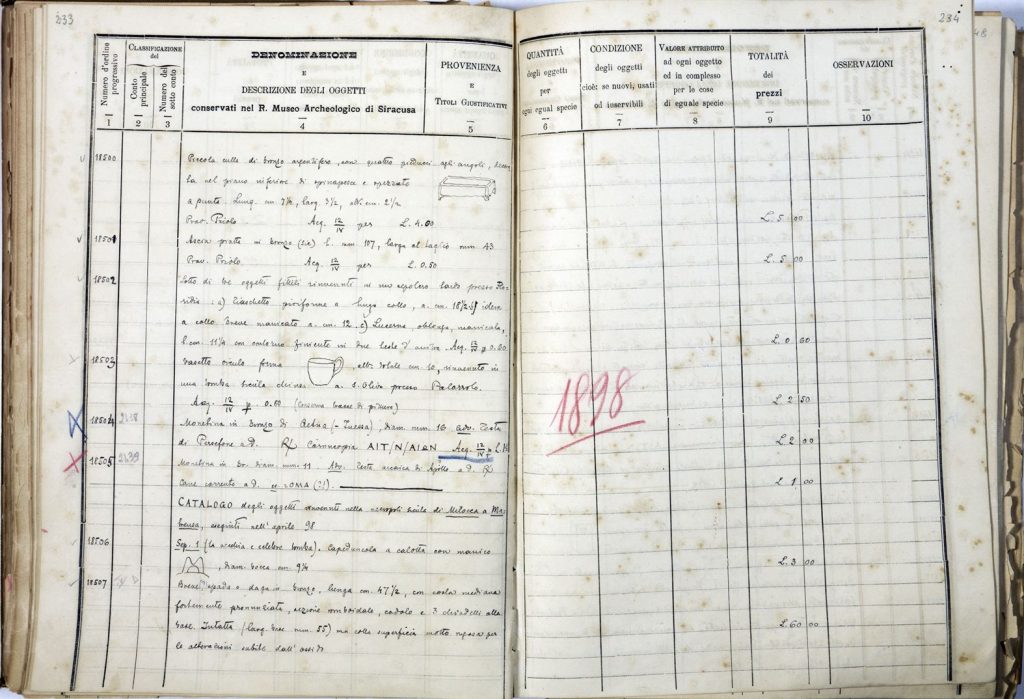 233
234
Numero d'ordine progressivo
CLASSIFICAZIONE del
Conto principale
Numero del sotto conto
DENOMINAZIONE
E
DESCRIZIONE DEGLI OGGETTI
conservati nel R. Museo Archeologico di Siracusa
PROVENIENZA
E
TITOLI GIUSTIFICATIVI
QUANTITÀ
degli oggetti
per
ogni egual specie
CONDIZIONE
degli oggetti
cioè: se nuovi, usati
od inservibili
VALORE ATTRIBUITO
ad ogni oggetto
od in complesso
per le cose
di eguale specie
TOTALITÀ
dei
prezzi
OSSERVAZIONI
1 2 3 4 5 6 7 8 9 10
18500 Piccola culla di bronzo argentifero, con quattro pieducci agli angoli,
nel piano inferiore di spinapesce e
a punta. Lung. cm. 7½, larg. 3½, alt. cm. 2½
Prov. Priolo Acq. 12/IV per L. 4.00 L. 5 00
18501 Ascia piatta in bronzo (sic) l. mm 107, larga al taglio mm 43
Prov. Priolo Acq. 12/IV per L. 0.50 L. 5 00
18502 Lotto di tre oggetti fittili rinvenuti in un sepolcro tardo presso Flo-
ridia: a) fiaschetto piriforme a lungo collo, a. cm. 18½ b) idem
a collo breve manicato a. cm. 12 c) Lucerna, oblunga, manicata,
l. cm. 11½ con contorno finiente in due teste d' Acq. 12/IV p 0.60 L. 0 60
18503 Vasetto siculo forma alt. cm. 10, rinvenuto in
una tomba sicula a S. Oliva presso Palazzolo.
Acq. 12/IV p 0.50 L. 2 50
18504 2438 Monetina in bronzo di Aetna (= Inessa), diam. mm. 16 adv. Testa
di Persefone a d. R/ Cornucopia AIT/N/AIΩN Acq. 12/IV L. 2 00
18505 2439 Monetina in br. diam. mm. 11 Adv. testa arcaica di Apollo a d. R/
Cane corrente a d. ex ROMA (?). L. 1 00
1898
CATALOGO degli oggetti rinvenuti nella necropoli sicula di Molocca a Ma-
trensa, eseguiti nell' aprile 98
18506 Sep. 1 (la vecchia e celebre tomba). Capeduncola a calotta con manico
, diam. bocca cm. 9¼ L. 3 00
18507 Breve spada o daga in bronzo, lunga cm. 47½, con costa mediana
fortemente pronunziata, sezione romboidale, codolo e 3 chiodetti alla
base. Intatta (larg. base mm. 55) ma colla superficie molto rugosa per L. 60 00
le alterazioni subite dall' ossido